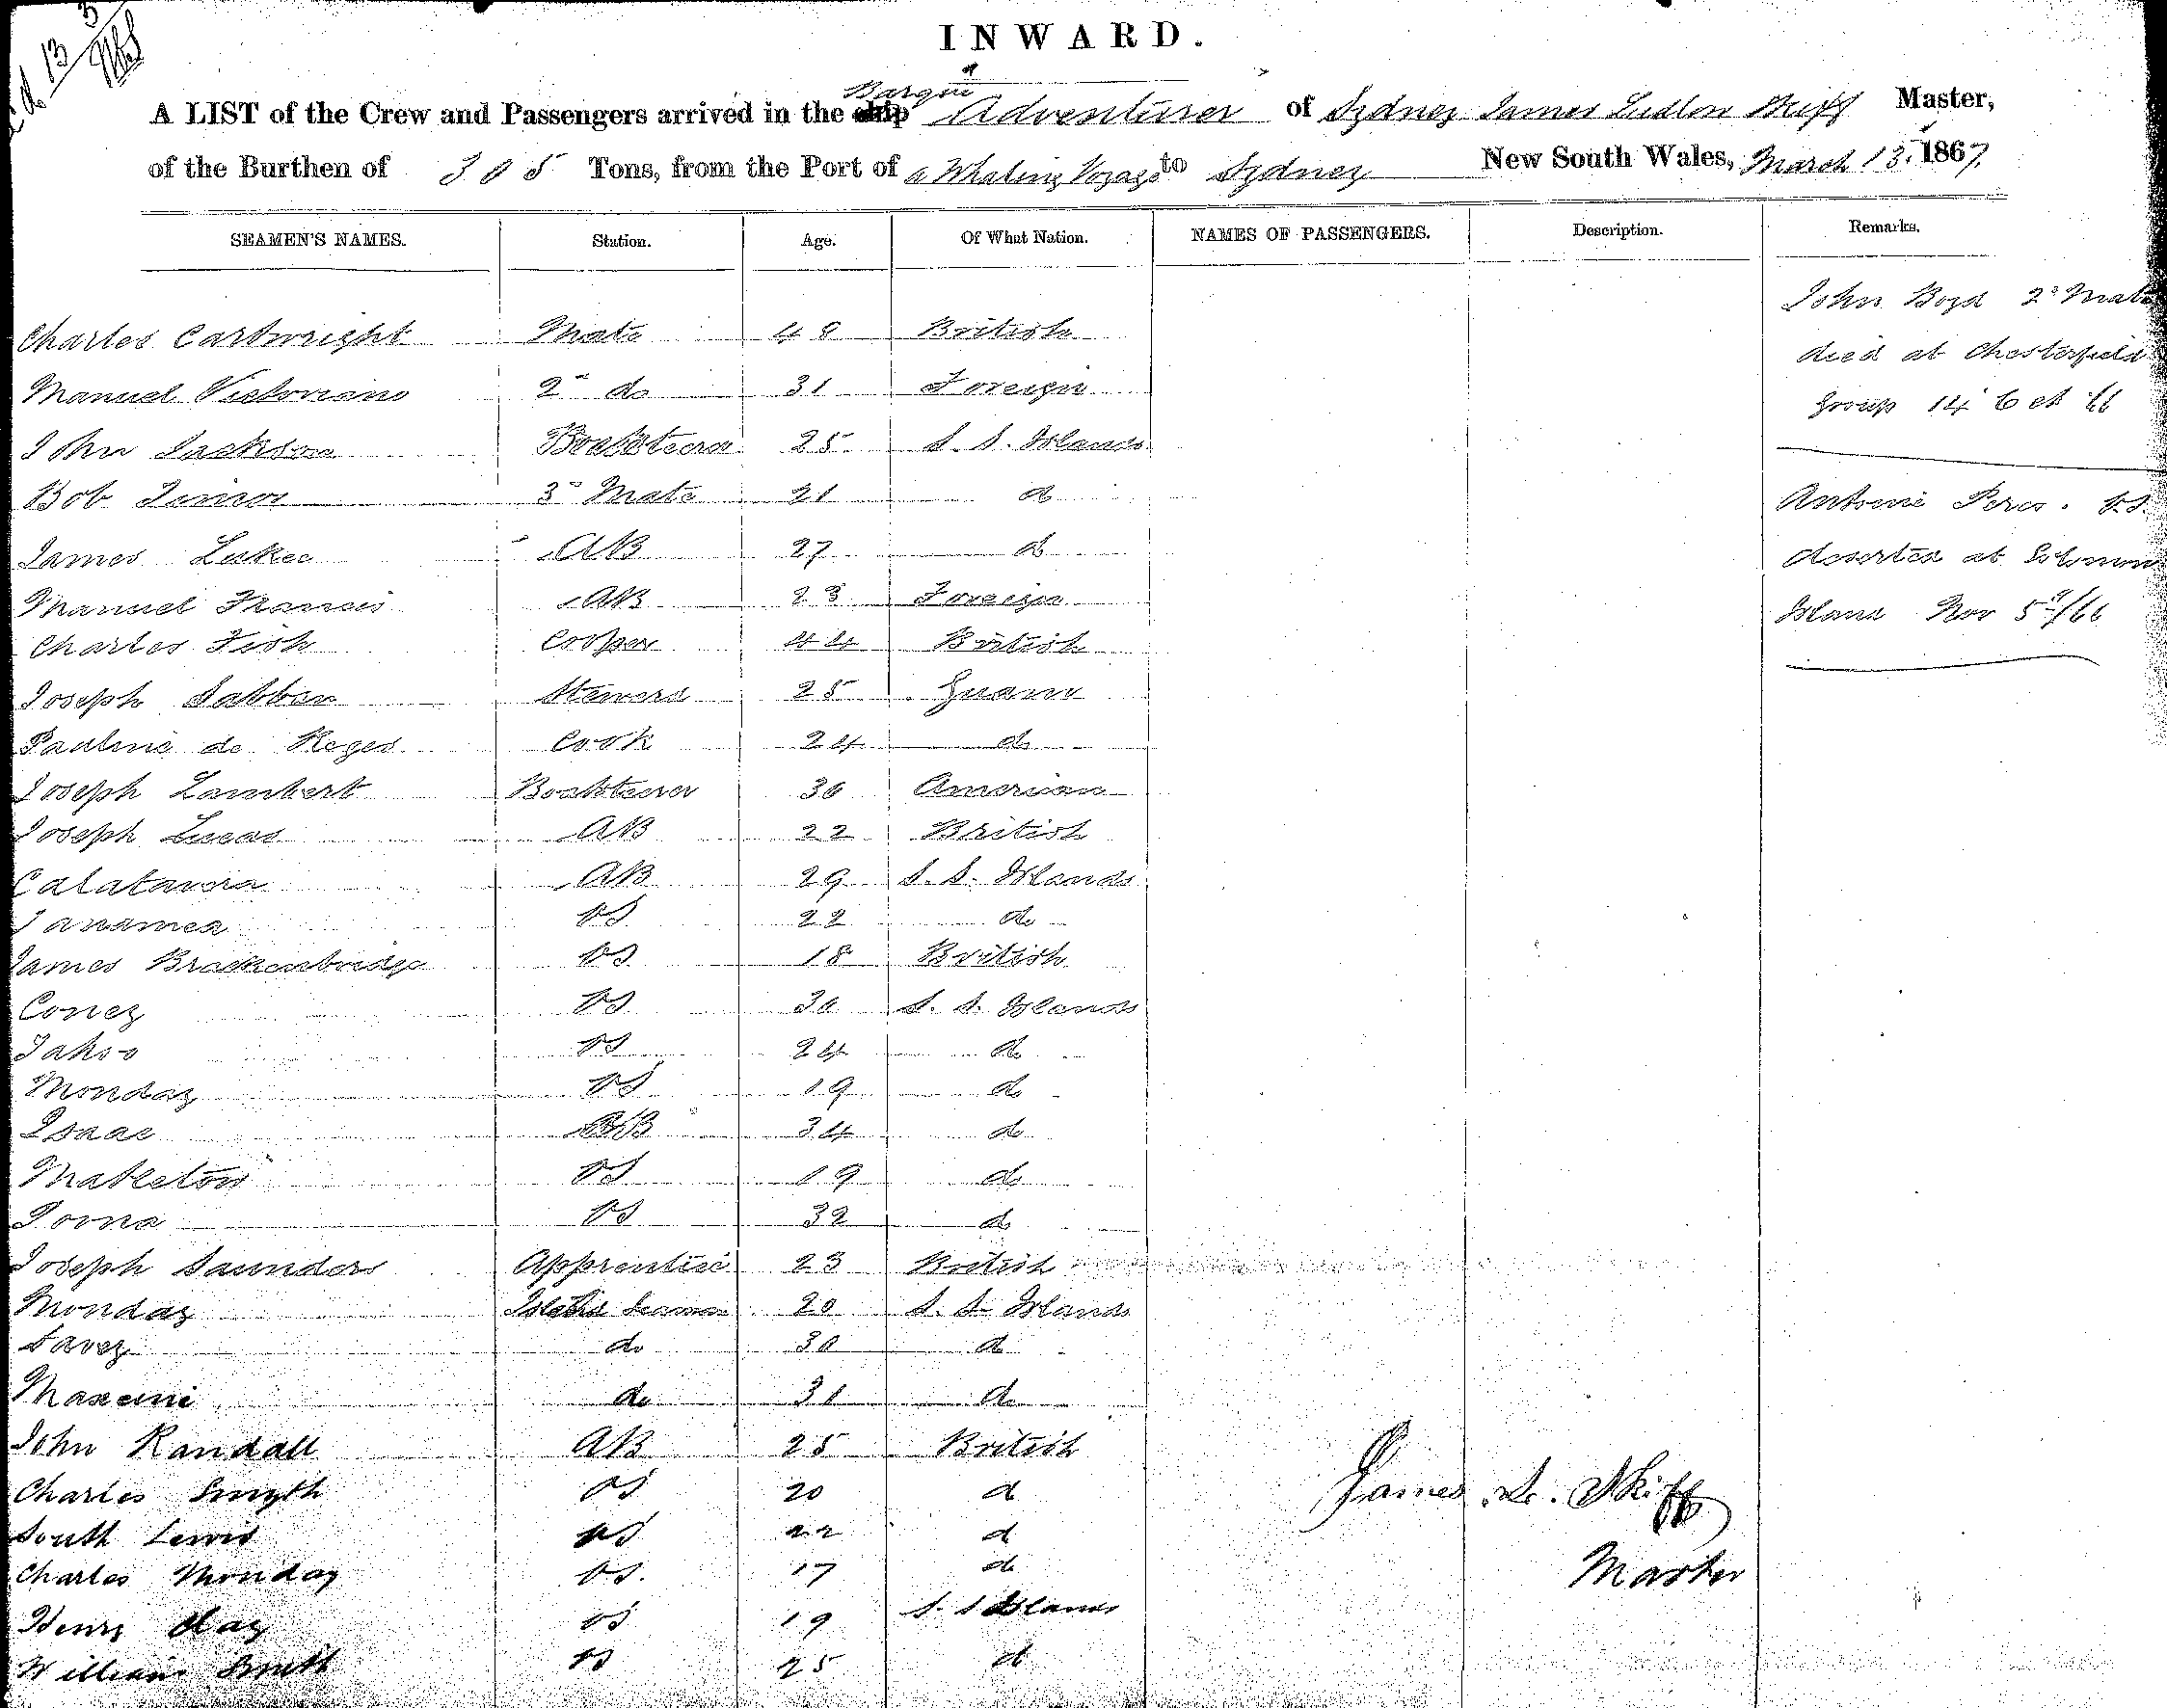 13/3
INWARD.
A LIST of the Crew and Passengers arrived in the Barque Adventurer of Sydney James Ludlow Skiff Master,
of the Burthen of 305 Tons, from the Port of a Whaling Voyage to Sydney New South Wales, March 13. 1867
SEAMEN'S NAMES. Station. Age. Of What Nation. NAMES OF PASSENGERS. Description. Remarks.
Charles Cartwright Mate 48 British
Manuel Victoriano 2nd do 31 Foreign
John Jackson Boatsteerer 25 S. S. Islands
Bob 3rd Mate 21 do
James AB 27 do
Manuel Francis AB 23 Foreign
Charles Fish Cooper 44 British
Joseph Steward 25 Guam
de Reges Cook 24 do
Joseph Lambert Boatsteerer 30 American
Joseph Lucas AB 22 British
AB 29 S. S. Islands
OS 22 do
James Brackenbridge OS 18 British
Coney OS 30 S. S. Islands
OS 24 do
Monday OS 19 do
Isaac AB 34 do
OS 19 do
OS 32 do
Joseph Saunders Apprentice 23 British
Monday Seaman 20 S. S. Islands
do 30 do
do 31 do
John Randall AB 25 British
Charles Smyth OS 20 do
South Lewis OS 22 do
Charles Monday OS. 17 do
Henry OS 19 S. S Islands
William Smith OS 25 do
John Boyd 2d Mate
died at Chesterfield
Group 14 Oct 66
Antonie Peres. OS.
deserted at Solomon
Island Nov 5th/66
James L. Skiff
Master